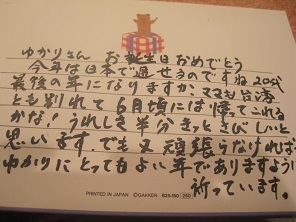 ゆかりさん お誕生日おめでとう
今年は日本で過せるのですね 20代
最後の年になりますか、ママも台湾
とも別れて6月頃には帰ってこれる
かな！うれしさ半分きっとさびしいと
思います。でも又頑張らなければ
ゆかりにとってもよい年でありますよう
祈っています。
PRINTED IN JAPAN ©GAKKEN 825-150